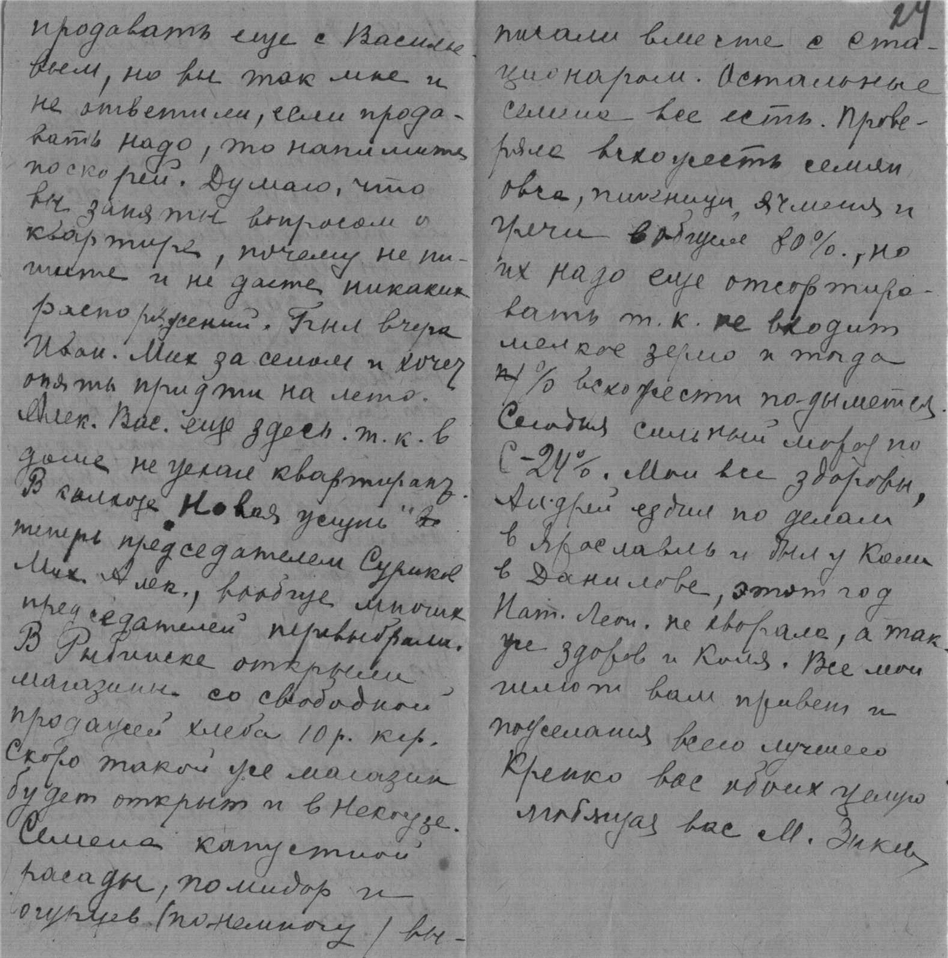 продавать еще с Василье
вым, но вы так мне и
не ответили, если прода-
вать надо, то напишите
поскорей. Думаю, что
вы заняты вопросом о
квартире, почему не пи-
шите и не даете никаких
распоряжений. Был вчера
Иван. Мих за сеном и хочет
опять придти на лето.
Алек. Вас. еще здесь. т. к. в
доме не уехал квартирант.
В колхозе "Новая жизнь"
теперь председателем Суриков
Мих Алек., вообще многих
председателей перевыбрали.
В Рыбинске открыли
магазины со свободной
продажей хлеба 10 р. кгр.
Скоро такой же магазин
будет открыт и в Некоузе.
Семена капустной
расады, помидор и
огурцев (понемногу) вы-
24
писали вместе с ста-
ционаром. Остальные
семена все есть. Прове-
ряла всхожесть семян
овса, пшеницы, ячменя и
гречи вобщем 80%., но
их надо еще отсортиро-
вать т. к. не входит
мелкое зерно и тогда
% всхожести подымется.
Сегодня сильный мороз по
С-24%. Мои все здоровы,
Андрей ездил по делам
в Ярославль и был у Коли
в Данилове, этот год
Нат. Леон. не хворала, а так-
же здоров и Коля. Все мои
шлют вам привет и
пожелания всего лучшего
Крепко вас обоих целую
любящая вас М.